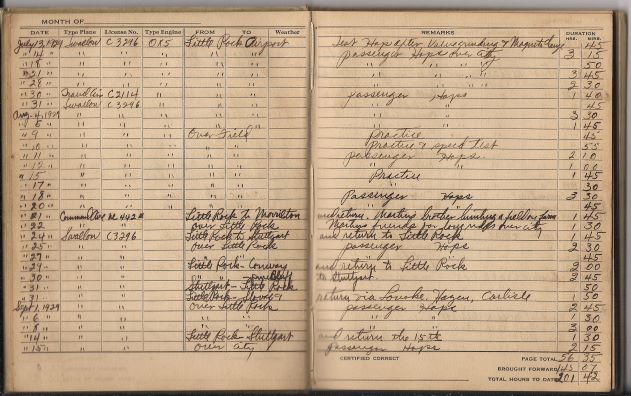 MONTH OF
DATE Type Plane License No. Type Engine FROM TO Weather REMARKS DURATION HRS. MINS.
July 13, 1929 Swallow C3296 OX5 Little Rock Airport Test Hops after Valve grinding & 45
" 14 " " " " " " passenger Hops over city 3 15
" 18 " " " " " " " " " 50
" 21 " " " " " " " " " 3 45
" 29 " " " " 2 30
" 30 " Travel Air C2114 " " passenger Hops 1 40
" 31 " Swallow C3296 " " " " 45
Aug. 4, 1929 " " " " " 3 30
" 8 " " " " " 1 45
" 9 " " " Over Field Practice 45
" 10 " " " " " Practice & speed test 55
" 11 " " " " " passenger Hops 2 10
" 12 " " " " " " " 1 00
" 15 " " " " Practice 1 45
" 17 " " " " " 30
" 18 " " " " Passenger Hops 3 30
" 20 " " " " " 45
" 21 " Command Aire Little Rock to Morrilton and return. 1 45
" 22 " " over Little Rock friends for over city 1 30
" 24 " Swallow C3296 Little Rock to Stuttgart and return to Little Rock 1 45
" 25 " " " over Little Rock passenger Hops 2 30
" 27 " " " " " " 45
" 29 " " " Little Rock - Conway and return to Little Rock 2 00
" 30 " " " " " - Pine Bluff Stuttgart 2 45
" 31 " " " Stuttgart - Little Rock 50
" 31 " " " Little Rock - return via Lonoke, Hazen, Carlisle 1 50
Sept 1, 1929 " " over Little Rock passenger Hops 2 45
" 6 " " " " " " " 1 30
" 8 " " " " " " " 3 00
" 14 " " " Little Rock - Stuttgart and return the 15th 1 30
" 15 " " " over city passenger Hops 2 15
CERTIFIED CORRECT PAGE TOTAL 56 35
BROUGHT FORWARD 145 07
TOTAL HOURS TO DATE 201 42